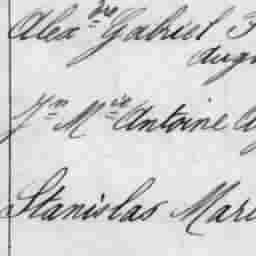 Alexdre Gabriel
Jn Mie Antoine
Stanislas Mari